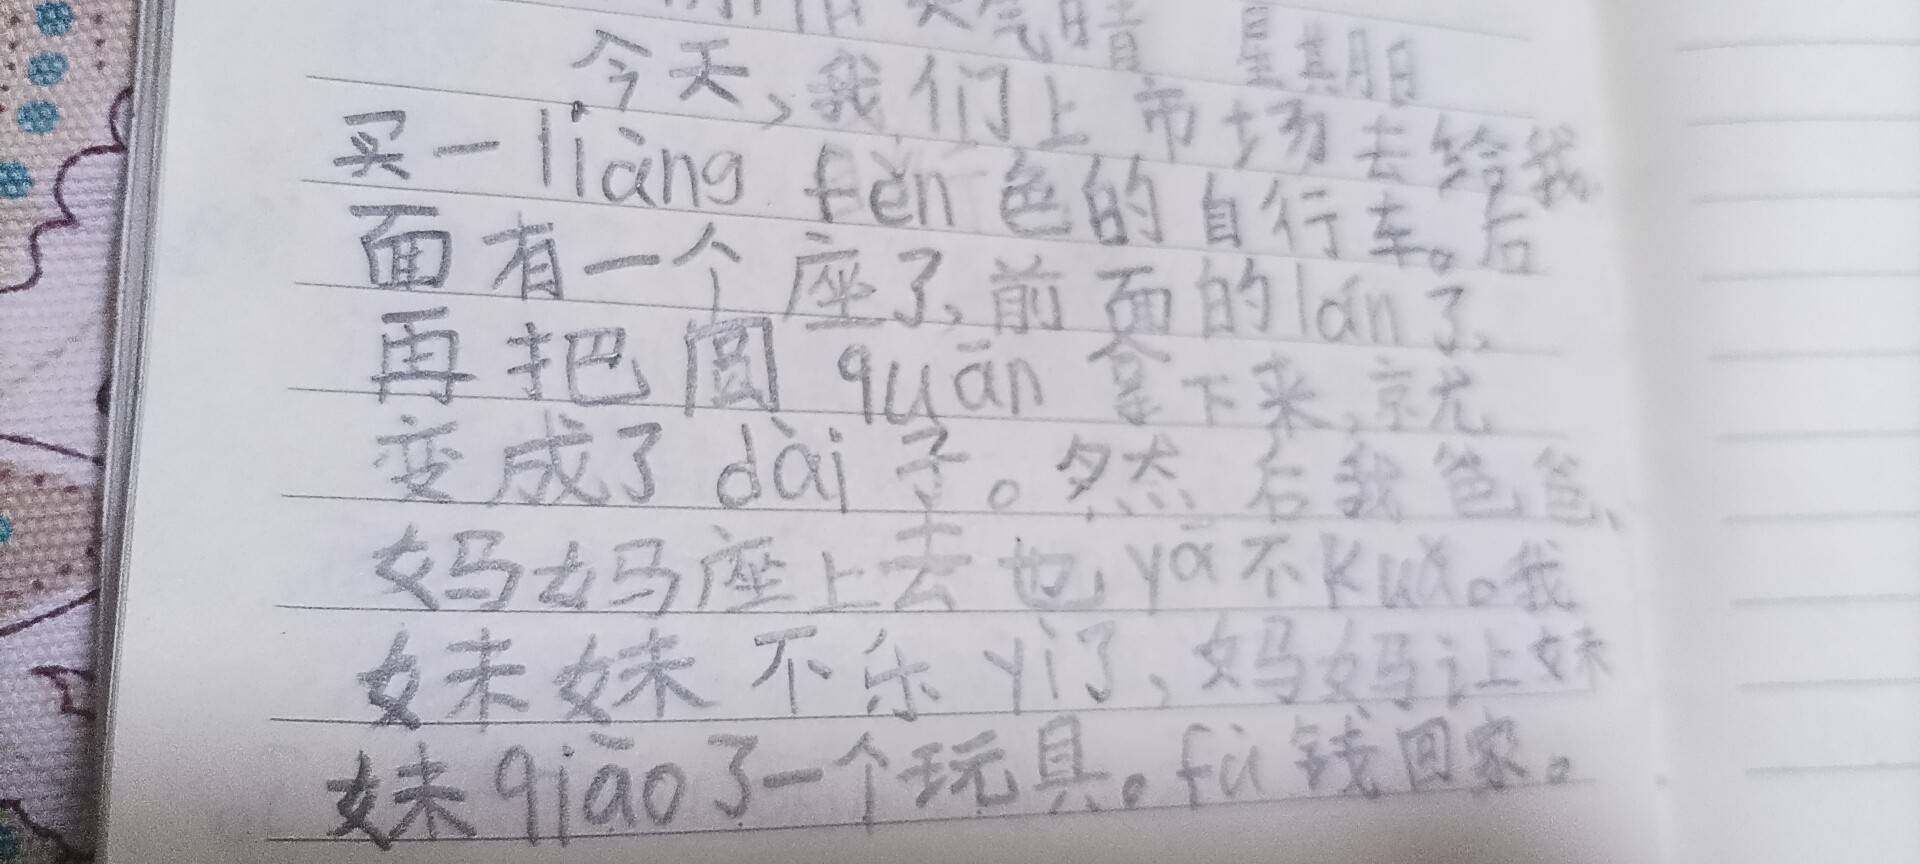 天气晴 星期日
今天,我们上市场去给我
买一liàng fěn色的自行车。后
面有一个座了,前面的lán了,
再把圆quān拿下来,京尤
变成了dài子。然后我爸爸、
妈妈座上去也yā不kuǎ。我
妹妹不乐yì了,妈妈让妹
妹qiāo了一个玩具。fù钱回家。